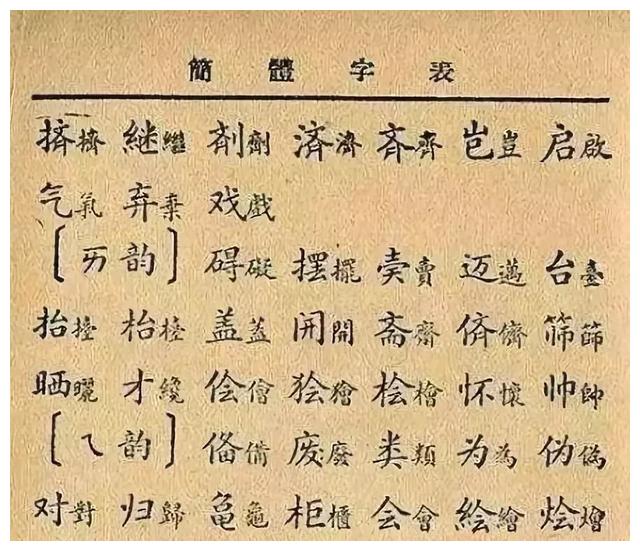 簡體字表
挤擠 継繼 剤劑 済濟 斉齊 岂豈 启啟
气氣 弃棄 戏戲
[ㄞ韵] 碍礙 摆擺 卖賣 迈邁 台臺
抬擡 枱檯 盖蓋 开開 斋齋 侪儕 筛篩
晒曬 才纔 侩儈 狯獪 桧檜 怀懷 帅帥
[ㄟ韵] 俻備 废廢 类類 为為 伪偽
对對 归歸 亀龜 柜櫃 会會 絵繪 烩燴